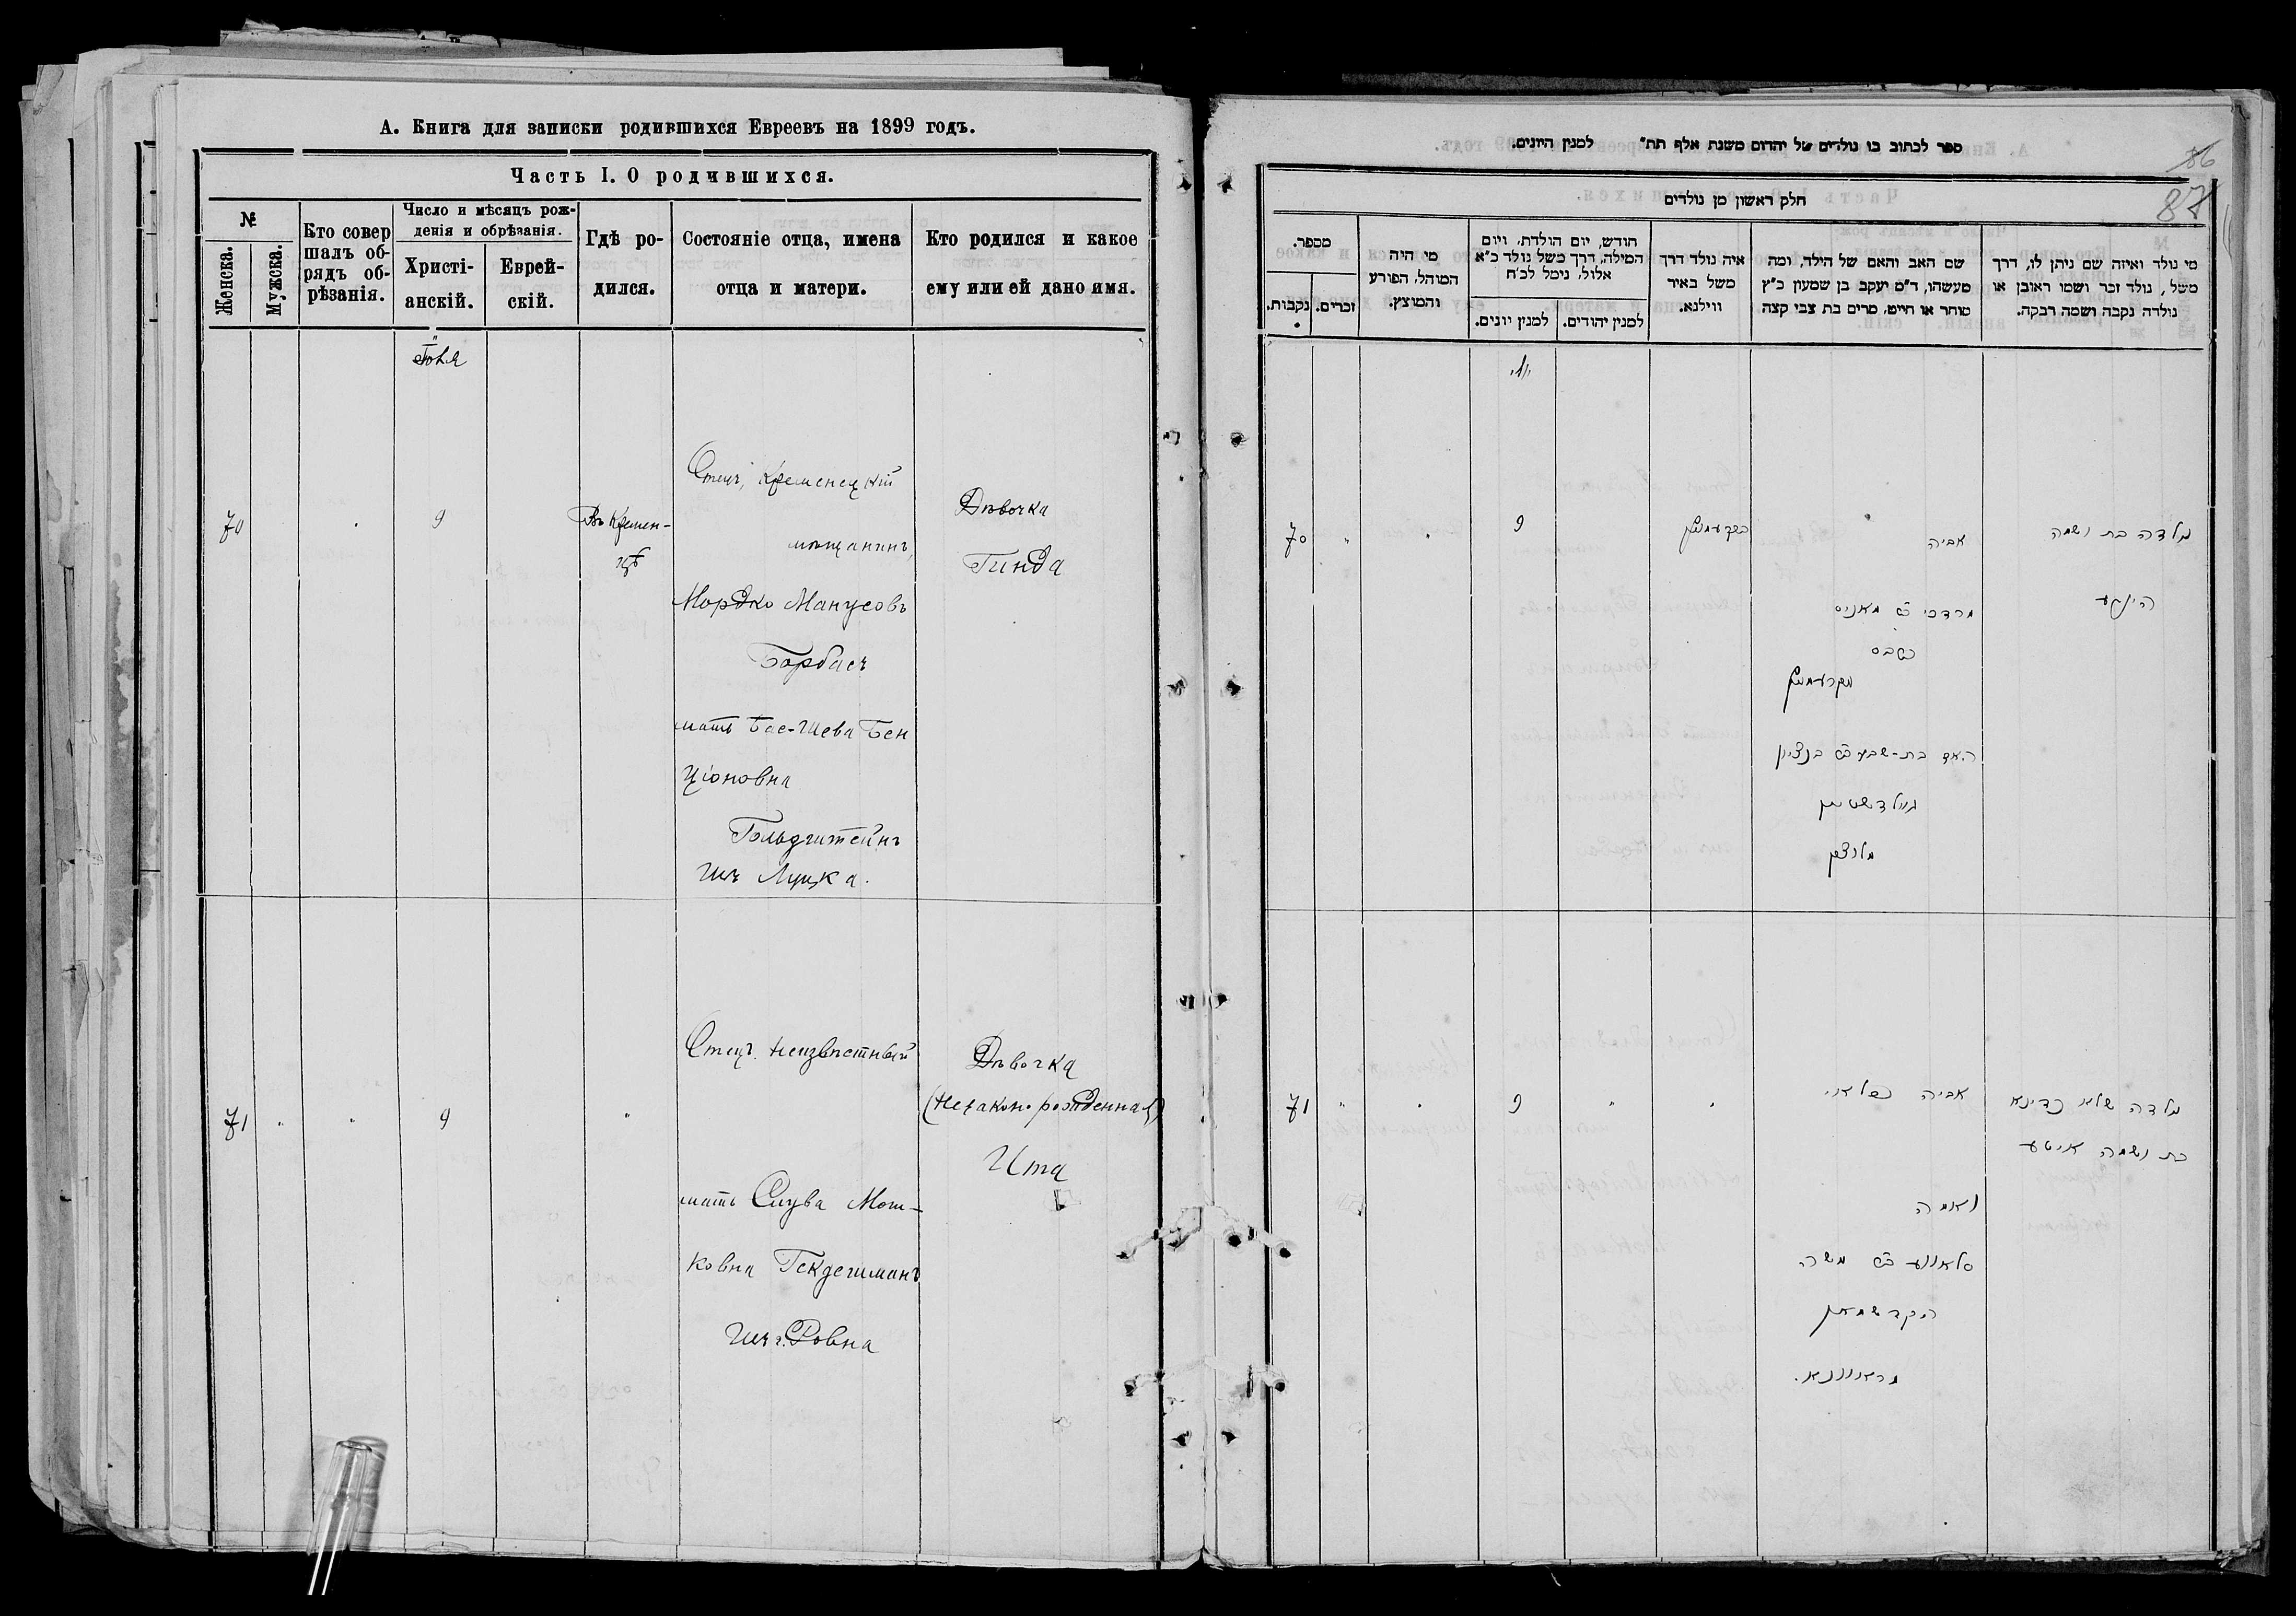 А. Книга для записки родившихся Евреевъ на 1899 годъ.
Часть I. О родившихся.
№
Женска.
Мужска.
Кто совер
шалъ об-
рядъ об-
рѣзанія.
Число и мѣсяцъ рож-
денія и обрѣзанія.
Христі-
анскій.
Еврей-
скій.
Гдѣ ро-
дился.
Состояніе отца, имена
отца и матери.
Кто родился и какое
ему или ей дано имя.
Іюля
70
9
Въ Кремен-
цѣ
Отецъ, Кременецкій
мѣщанинъ,
Мордко Манусовъ
Борбасъ
мать Бас-Шева Бен
ціоновна
Гольдштейнъ
изъ Луцка.
Дѣвочка
Гинда
71
"
"
9
"
Отецъ неизвѣстный
мать Слува Мош-
ковна Гекдешманъ
изъ г. Ровна
Дѣвочка
(незаконорожденная)
Ита
ספר לכתוב בו נולדים של יהדום משנת אלף תת" למנין היונים.
86
87
חלק ראשון מן נולדים
מספר.
נקבות.
זכרים.
מי היה
המוהל, הפורע
והמוצץ.
חודש, יום הולדת, ויום
המילה, דרך משל נולד כ"א
אלול, נימל לכ"ח
למנין יונים.
למנין יהודים.
איה נולד דרך
משל באיר
ווילנא.
שם האב והאם של הילד, ומה
מעשהו, ד"מ יעקב בן שמעון כ"ץ
סוחר או חייט, מרים בת צבי קצה
מי נולד ואיזה שם ניתן לו, דרך
משל, נולד זכר ושמו ראובן או
נולדה נקבה ושמה רבקה.
יולי
70
"
"
9
בקרעמעניץ
אביה
מרדכי ב"ר מאניס
מקרעמעניץ
האם בת-שבע ב"ר בנציון
גאלדשטיין
מלוצק
נולדה בת ושמה
הינדע
71
"
"
9
"
"
אביה
ואמה
סלאווע ב"ר משה
הקדשמאן
מראוונא.
נולדה שלא כדינא
בת ושמה איטע